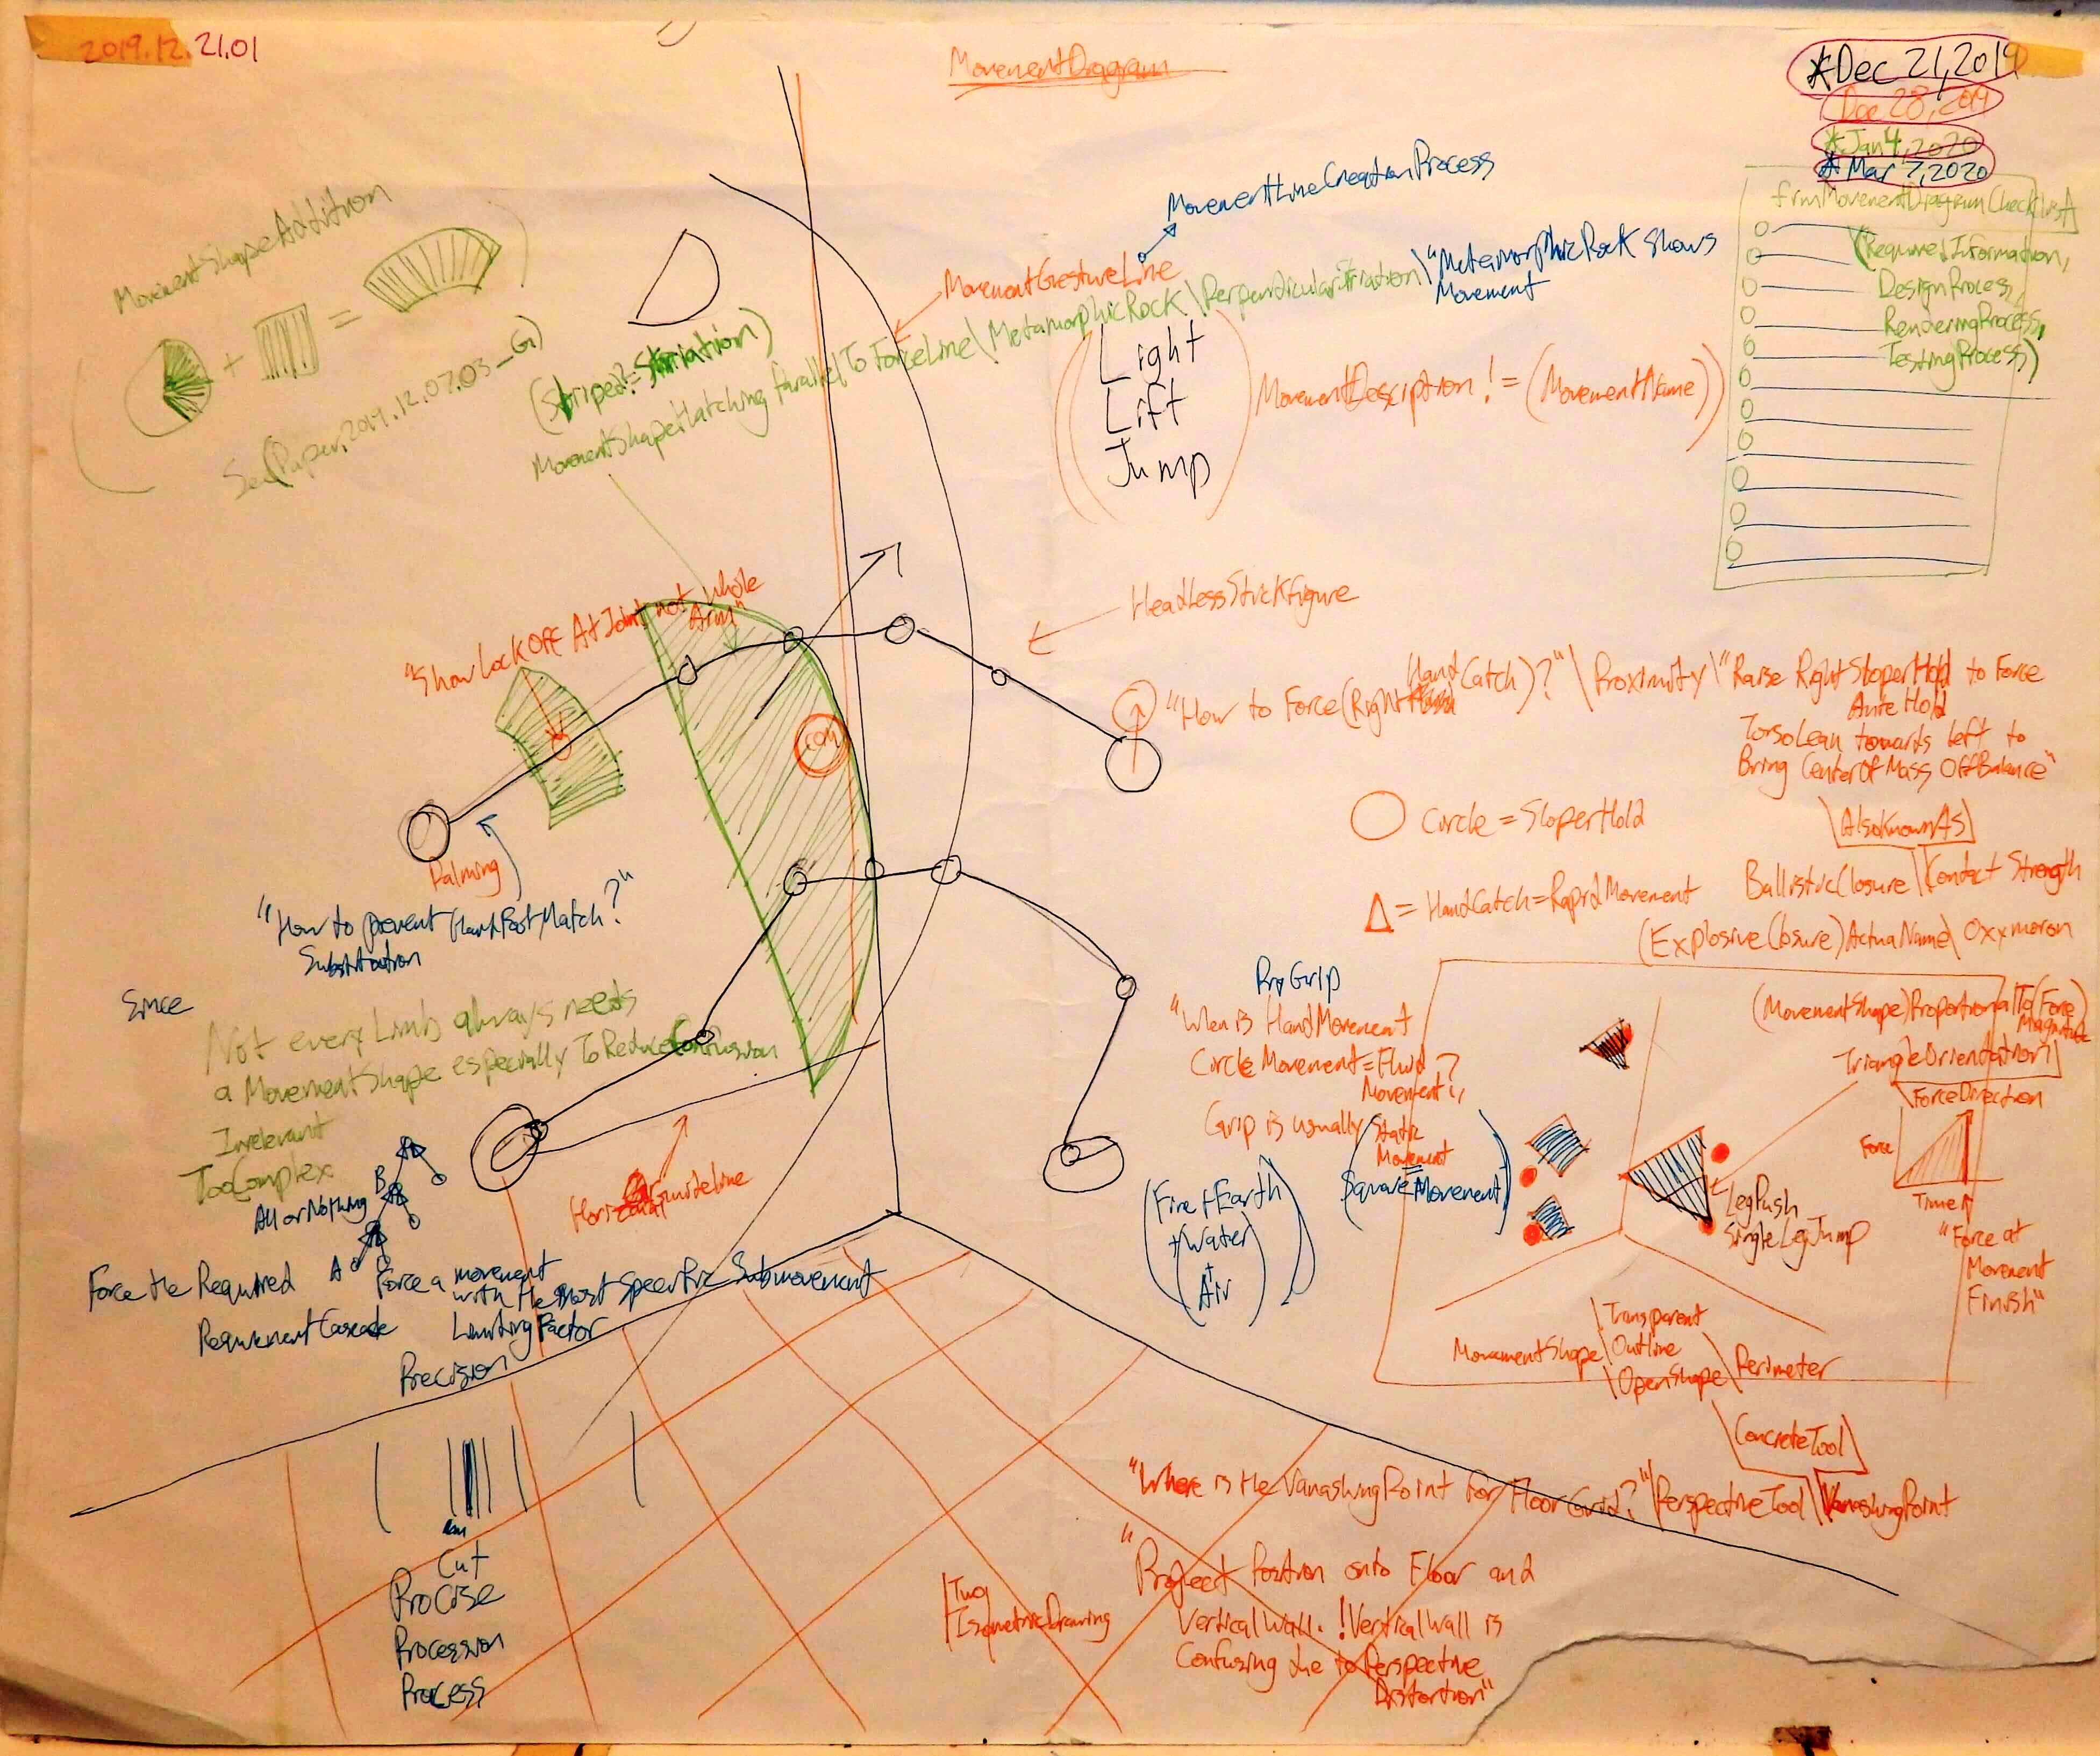 2019.12.21.01
MovementDiagram
*Dec 21,2019
Dec 28,2019
*Jan 4,2020
*Mar 7,2020
frmMovementDiagramChecklist
(RequiredInformation,
DesignProcess,
RenderingProcess,
TestingProcess)
MovementShapeAddition
+ =
See(Paper,2019.12.07.03_G1)
(Stripe?=Striation)
MovementShapeHatching Parallel To ForceLine\MetamorphicRock\PerpendicularStriation\"MetamorphicRock Shows
Movement
MovementLineCreationProcess
MovementGestureLine
Light
Lift
Jump
MovementDescription != (MovementName)
"Show LockOff At Joint, not whole
Arm"
HeadlessStickFigure
COM
"How to Force(Right Hand Catch)?"\Proximity\"Raise Right SloperHold to Force
Hold
TorsoLean towards left to
Bring CenterOfMass OffBalance"
Circle = SloperHold
\AlsoKnownAs\
Δ = HandCatch=RapidMovement
BallisticClosure\Contact Strength
(ExplosiveClosure)ActualName\Oxxmoron
Palming
"How to prevent HandFootMatch?"
Substitution
Since
Not every Limb always needs
a MovementShape especially To Reduce Confusion
Irrelevant
TooComplex
All or Nothing
B
A
Force the Required
Force a movement
with the Most Specific Submovement
RequirementCascade
Limiting Factor
Precision
GuideLine
Cut
Procise
Procession
Process
Grip
"When is HandMovement
Circle Movement=Fluid
Movement?
Grip is usually Static
Movement
=
SquareMovement)
(Fire+Earth
+Water
+
Air)
(MovementShape)ProportionalTo(Force
Magnitude)
TriangleOrientation\
\ForceDirection
Force
Time
LegPush
SingleLegJump
"Force at
Movement
Finish"
MovementShape\Transparent
\Outline
\OpenShape\Perimeter
\ConcreteTool\
"Where is the VanashingPoint for FloorGrid?"\PerspectiveTool\VanashingPoint
"Project Position onto Floor and
VerticalWall. !VerticalWall is
Confusing due to Perspective
Distortion"
IsometricDrawing